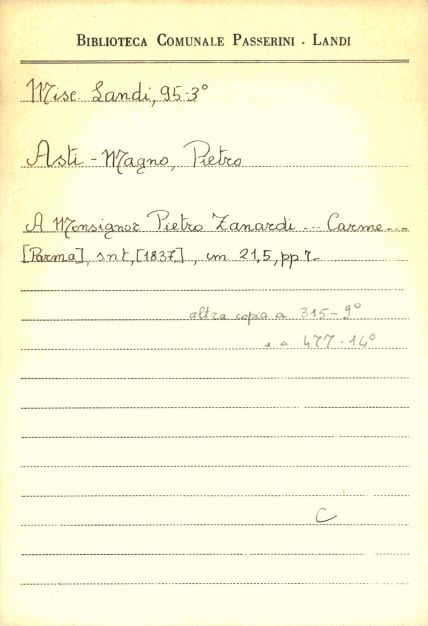 BIBLIOTECA COMUNALE PASSERINI - LANDI
Misc. Landi, 95-3°
Asti - Magno, Pietro
A Monsignor Pietro Zanardi ... Carme ...
[Parma], s.n.t, [1837], cm 21,5, pp. 7-
altra copia a 315-9°
e a 477-14°
C